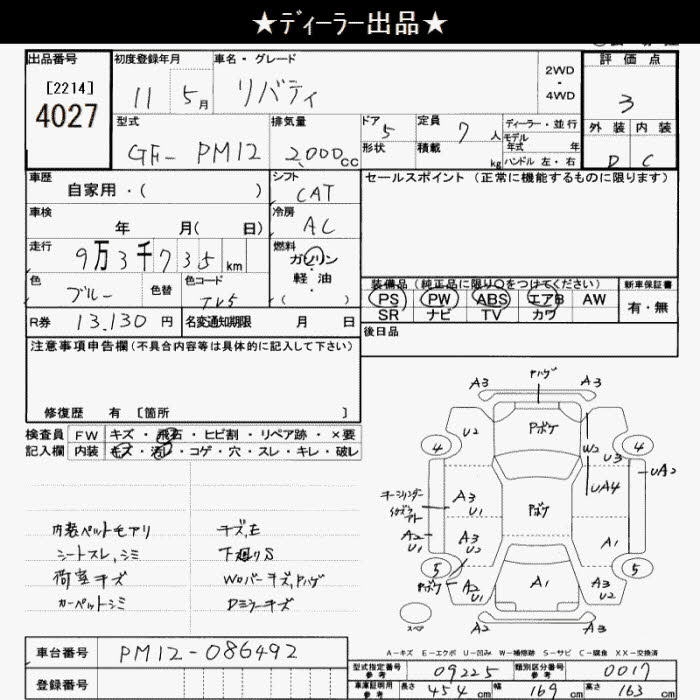 ★ディーラー出品★
出品番号 初度登録年月 車名・グレード 評価点
[2214] 11 5月 リバティ 2WD・4WD 3
4027
型式 排気量 ドア 5 定員 7人 ディーラー・並行 外装 内装
GF-PM12 2,000cc 形状 積載 kg モデル年式 年 D C
ハンドル 左・右
車歴 自家用・( ) シフト CAT セールスポイント(正常に機能するものに限ります)
車検 年 月( 日) 冷房 AC
走行 9万3千735km 燃料 ガソリン・軽油 ( )
色 ブルー 色替 色コード TV5
装備品(純正品に限り○をつけてください) 新車保証書
PS PW ABS エアB AW 有・無
SR ナビ TV カワ
R券 13,130円 名変通知期限 月 日 後日品
注意事項申告欄(不具合内容等は具体的に記入して下さい)
修復歴 有 [箇所 ]
検査員記入欄 FW キズ・飛石・ヒビ割・リペア跡・×要
内装 キズ・汚れ・コゲ・穴・スレ・キレ・破レ
内装ペットモアリ キズ,E
シートスレ,シミ 下廻りS
荷室キズ Woバーキズ,ハゲ
カーペットシミ Dミラーキズ
A3 ハゲ A3
U2 Pボケ
4 W2 U3 4
UA2
UA4
A3 U1 Pボケ
A2 U1 A3 U2 A1
5 5
Pボケ A2 U1 A1 A3 U2
スペア A3 A3
A-キズ E-エクボ U-凹み W-補修跡 S-サビ C-腐食 XX-交換済
車台番号 PM12-086492
型式指定番号 参考 09225 類別区分番号 参考 0017
登録番号
車庫証明用 参考 長さ 454cm 幅 169cm 高さ 163cm